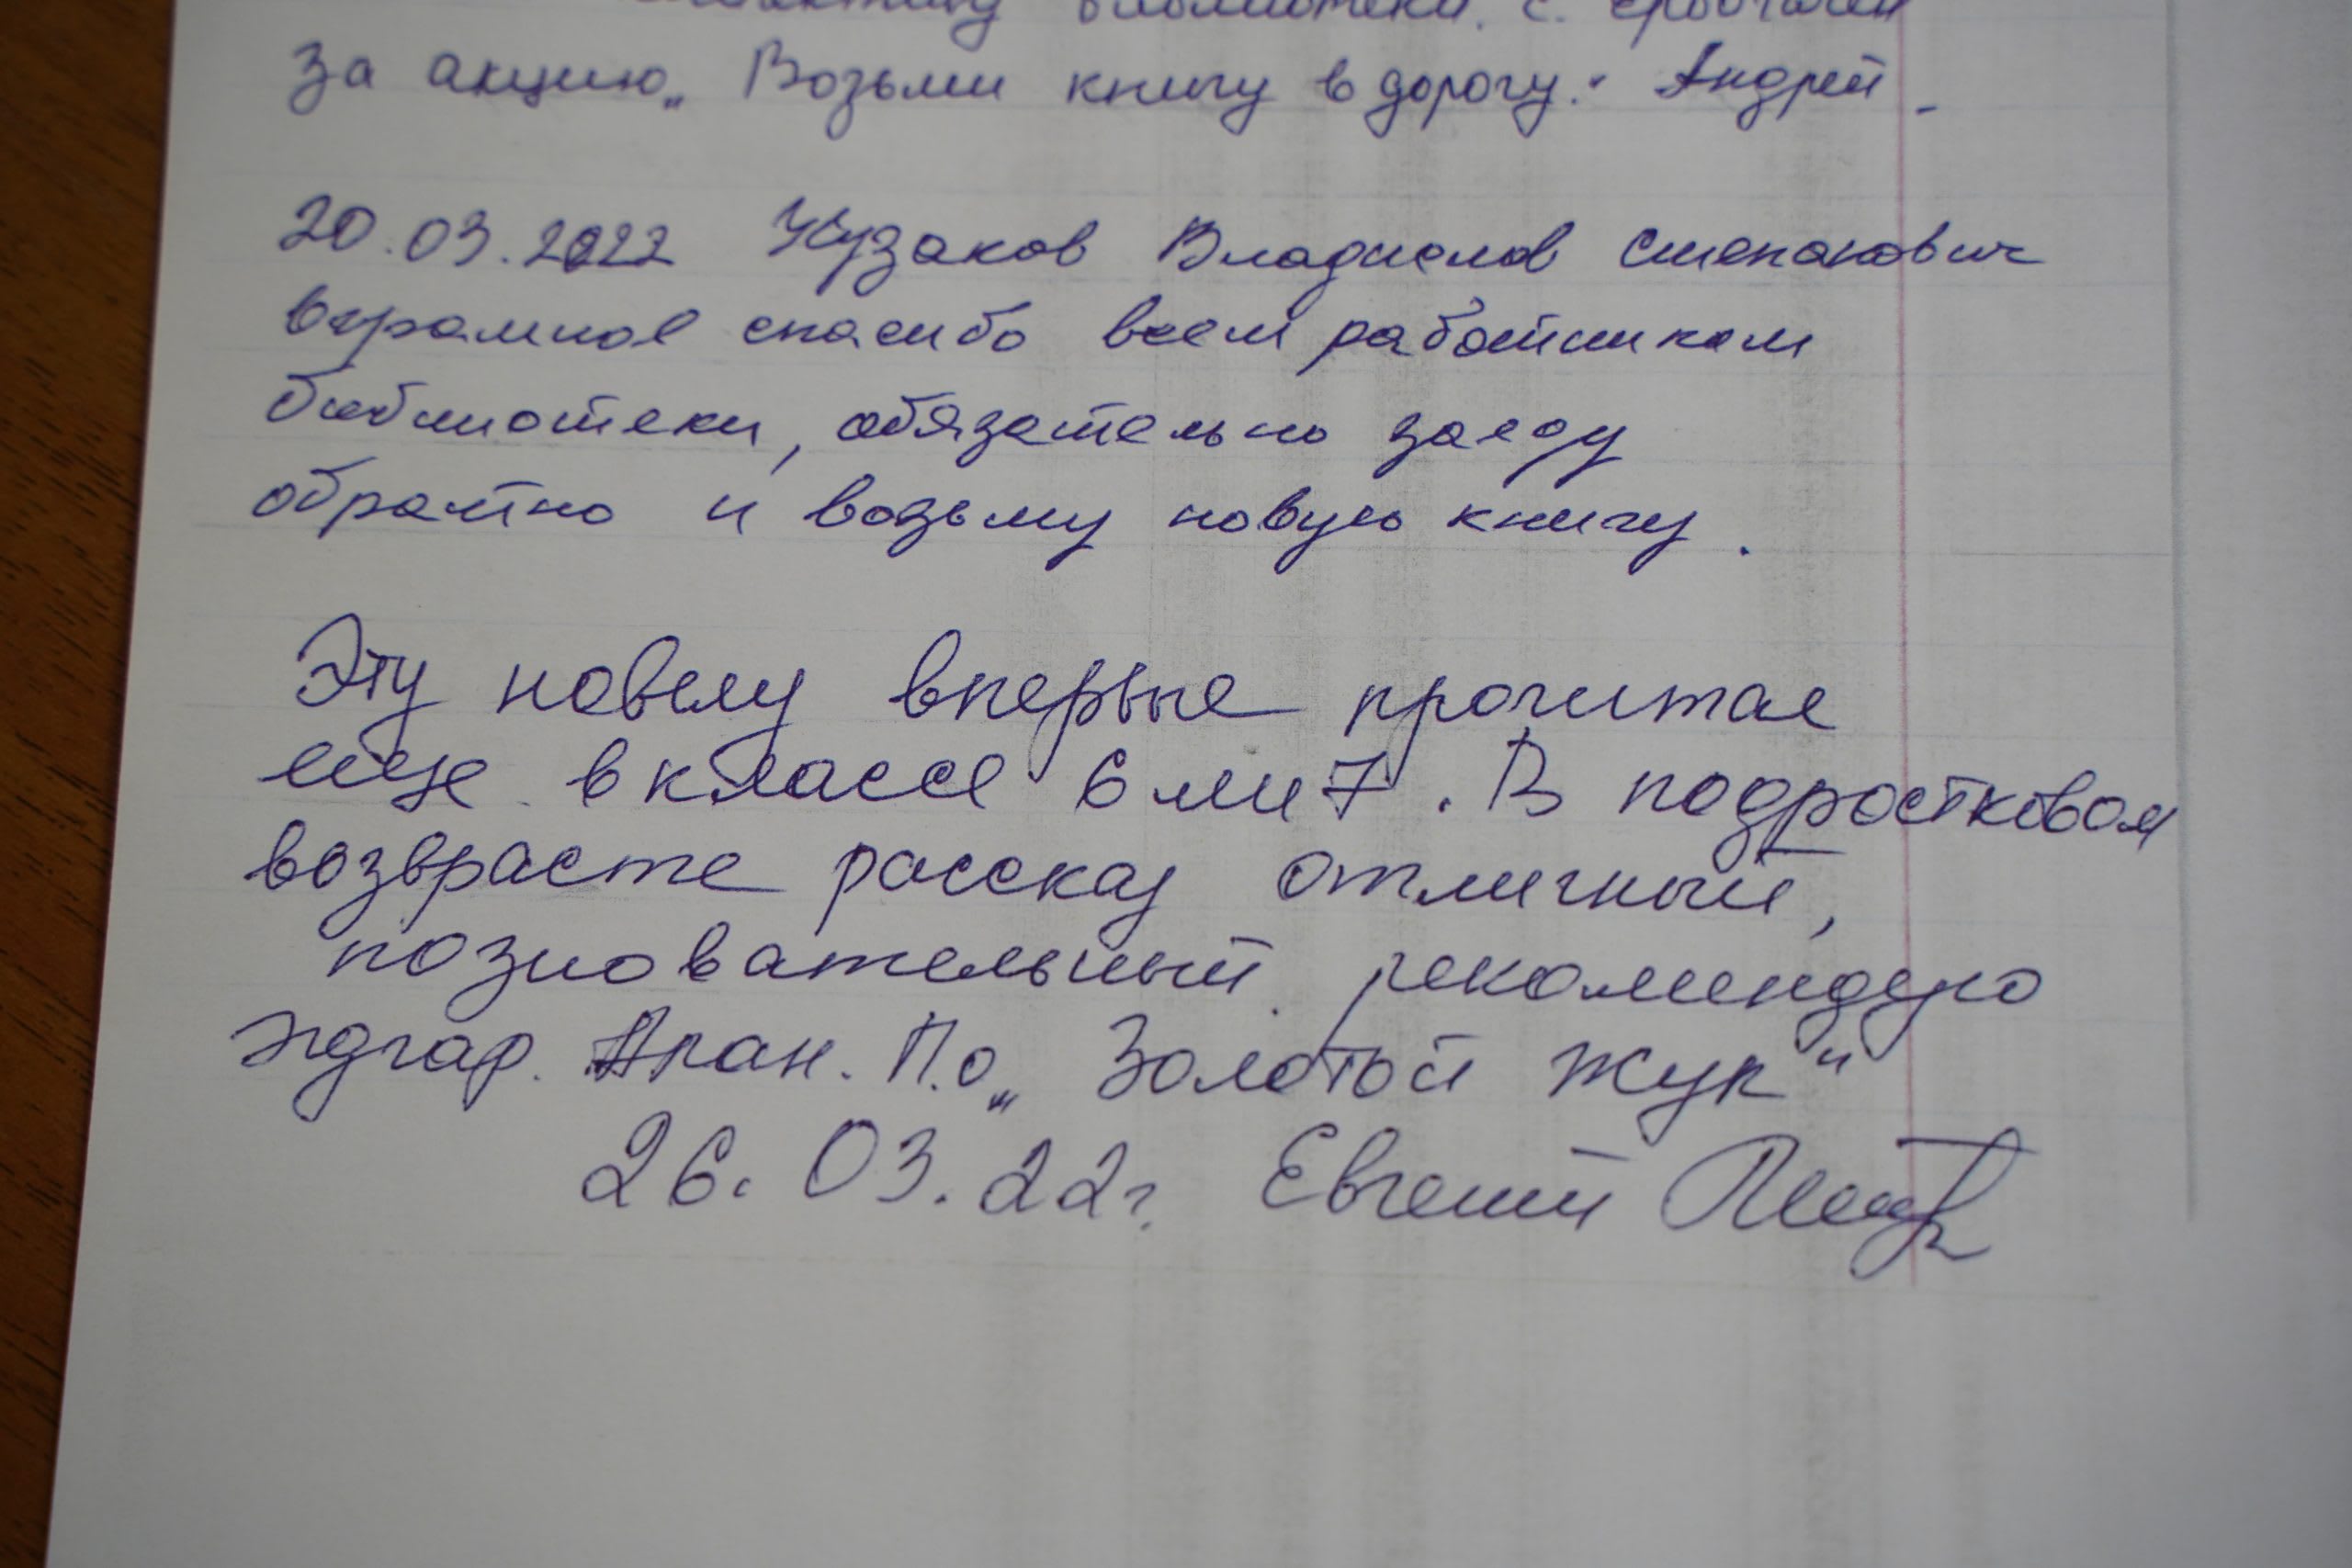 библиотеки с.
за акцию „Возьми книгу в дорогу." Андрей
20.03.2022 Кузаков Владислав Степанович
вграмное спасибо всем работникам
библиотеки, обязательно заеду
обратно и возьму новую книгу.
Эту новелу впервые прочитал
еще в классе 6 или 7. В подростковом
возврасте рассказ отличный,
позновательный. рекомендую
Эдгар. Алан. П.о „Золотой жук"
26.03.22г. Евгений